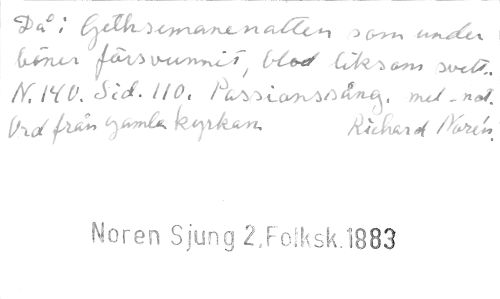 Då: Gethsemanenatten som under
böner försvunnit, blod liksom svett.
N. 140. Sid. 110. Passionssång. mel-not.
Ord från gamla kyrkan. Richard Norén.
Noren Sjung 2, Folksk. 1883